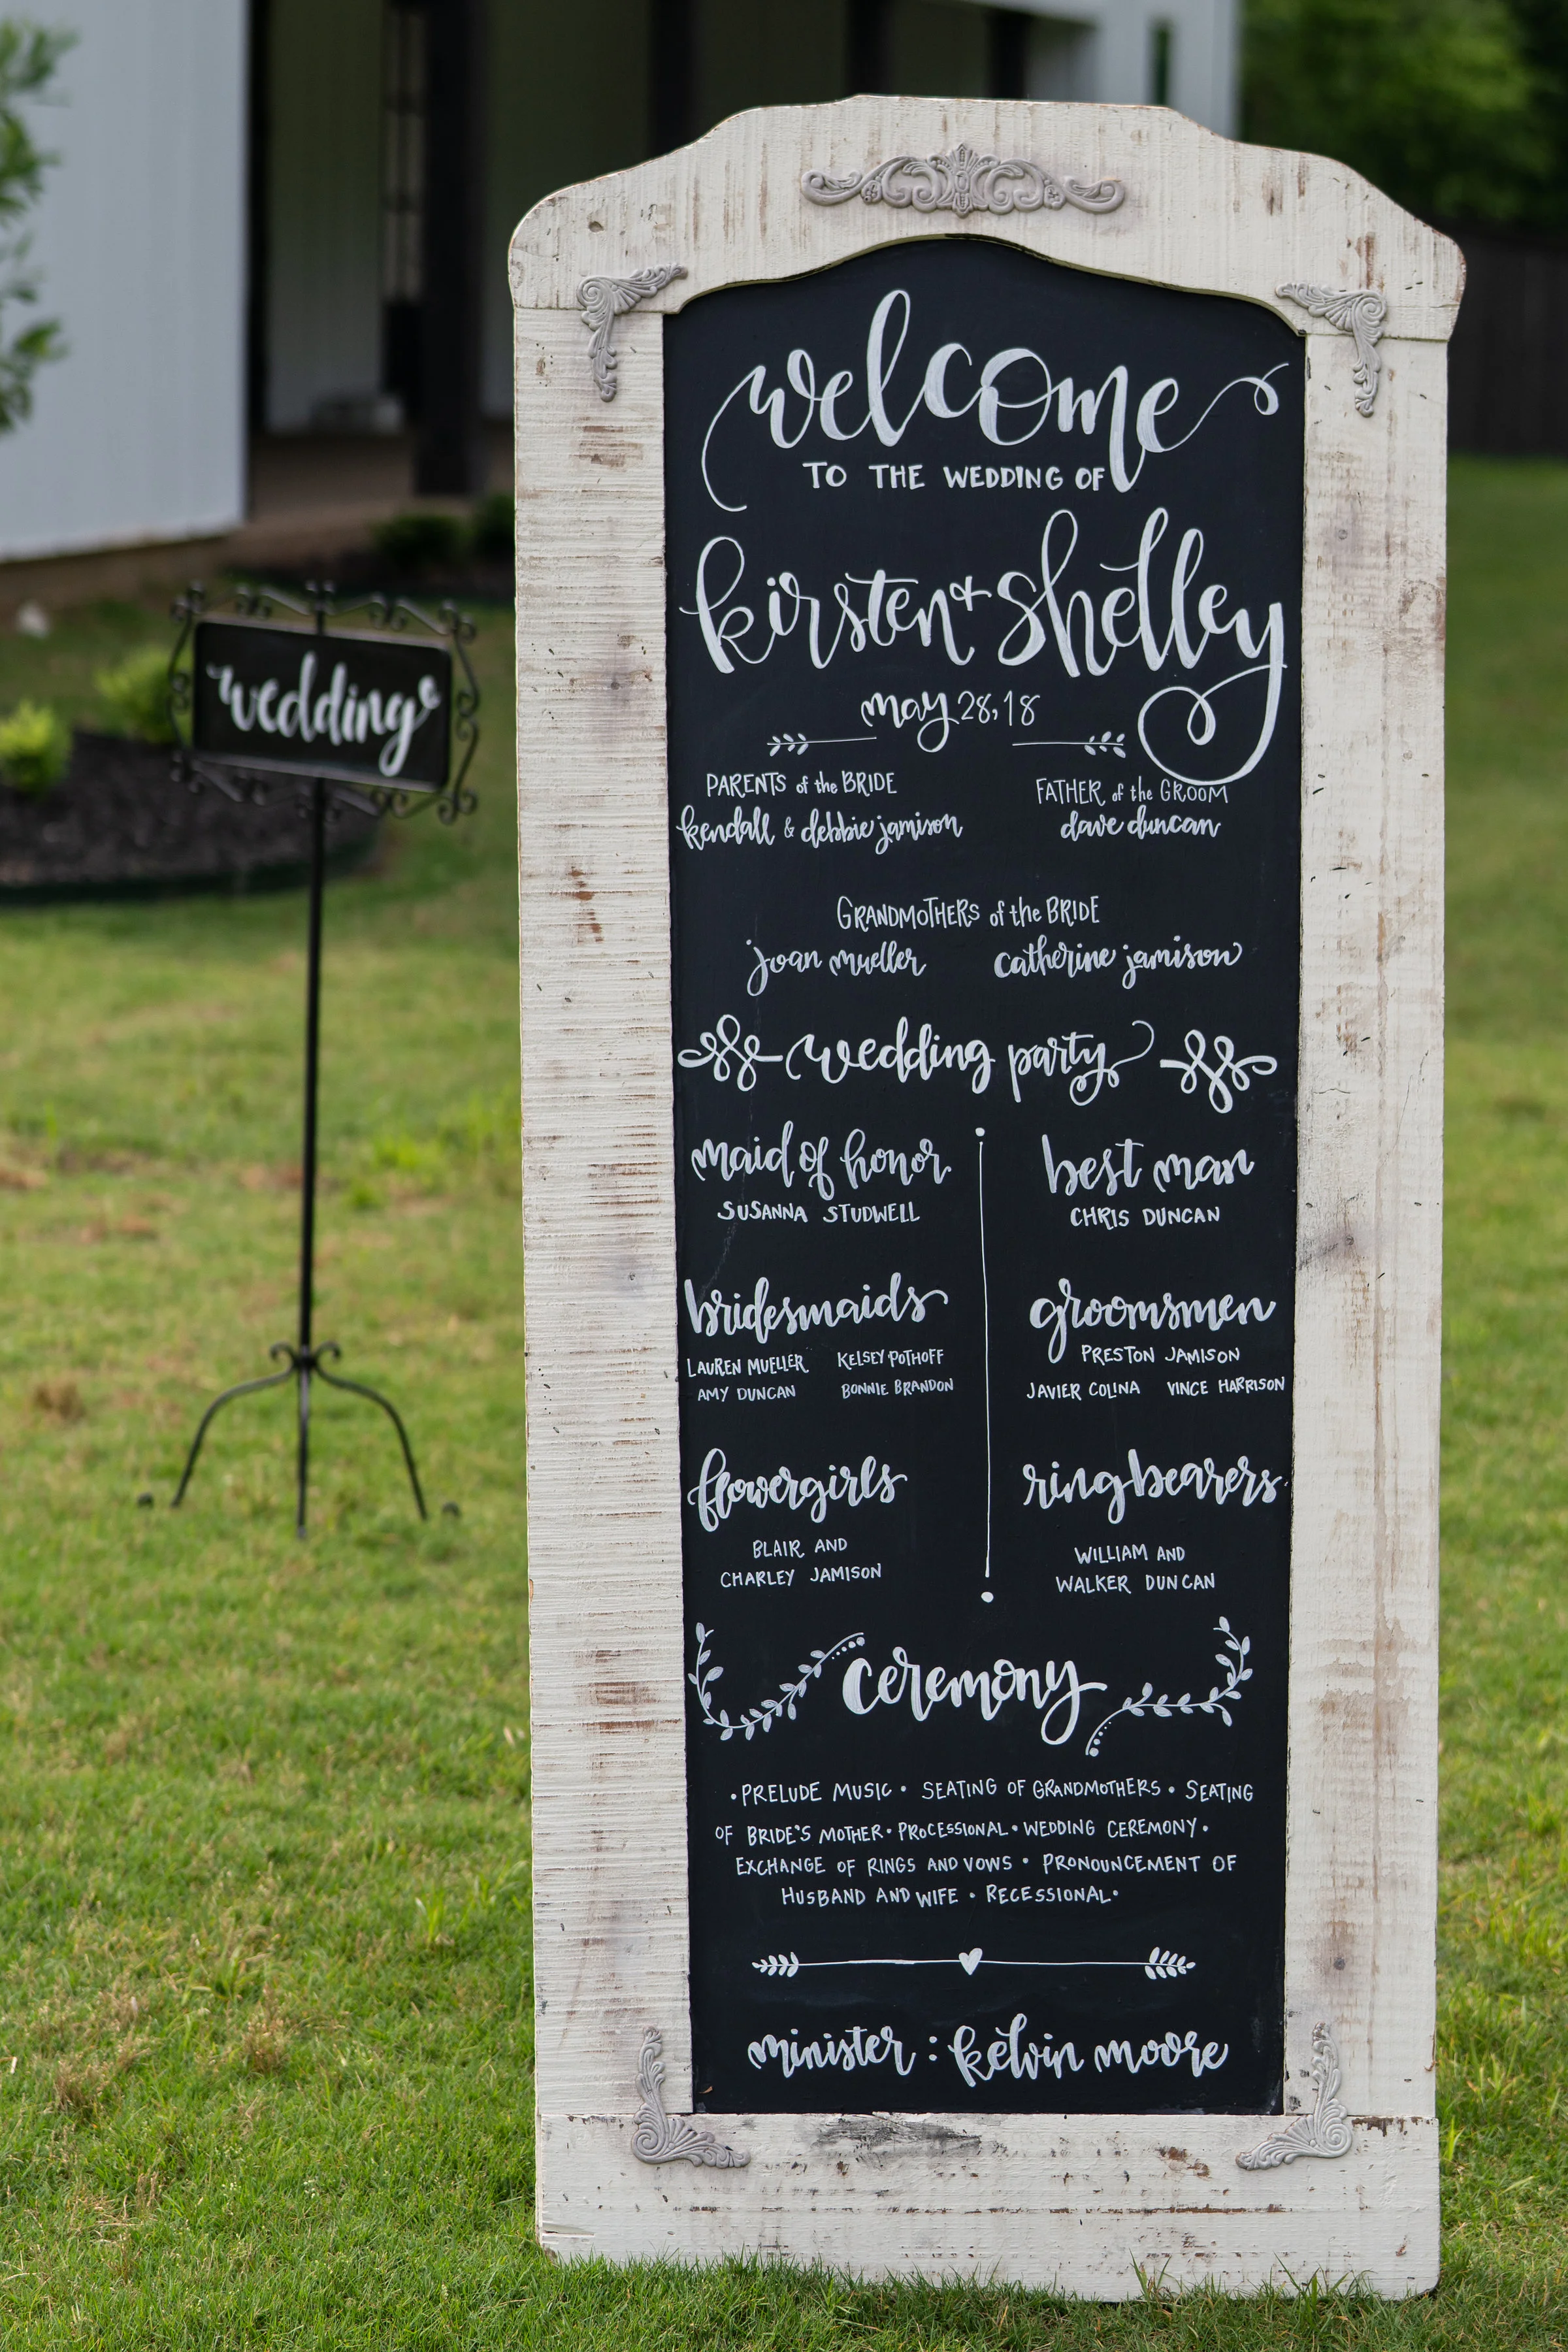 welcome
TO THE WEDDING OF
kirsten + shelley
may 28, 18
PARENTS of the BRIDE
kendall & debbie jamison
FATHER of the GROOM
dave duncan
GRANDMOTHERS of the BRIDE
joan mueller catherine jamison
wedding party
maid of honor
SUSANNA STUDWELL
best man
CHRIS DUNCAN
bridesmaids
LAUREN MUELLER KELSEY POTHOFF
AMY DUNCAN BONNIE BRANDON
groomsmen
PRESTON JAMISON
JAVIER COLINA VINCE HARRISON
flowergirls
BLAIR AND
CHARLEY JAMISON
ringbearers
WILLIAM AND
WALKER DUNCAN
ceremony
• PRELUDE MUSIC • SEATING OF GRANDMOTHERS • SEATING
OF BRIDE'S MOTHER • PROCESSIONAL • WEDDING CEREMONY •
EXCHANGE OF RINGS AND VOWS • PRONOUNCEMENT OF
HUSBAND AND WIFE • RECESSIONAL •
minister : kelvin moore
wedding